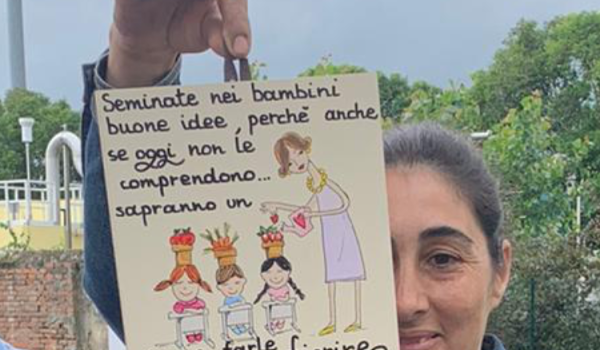 Seminate nei bambini
buone idee, perchè anche
se oggi non le
comprendono...
sapranno un
farle fiorire